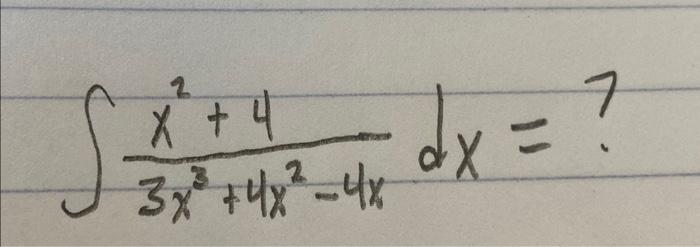 ∫ (x² + 4)/(3x³ + 4x² - 4x) dx = ?